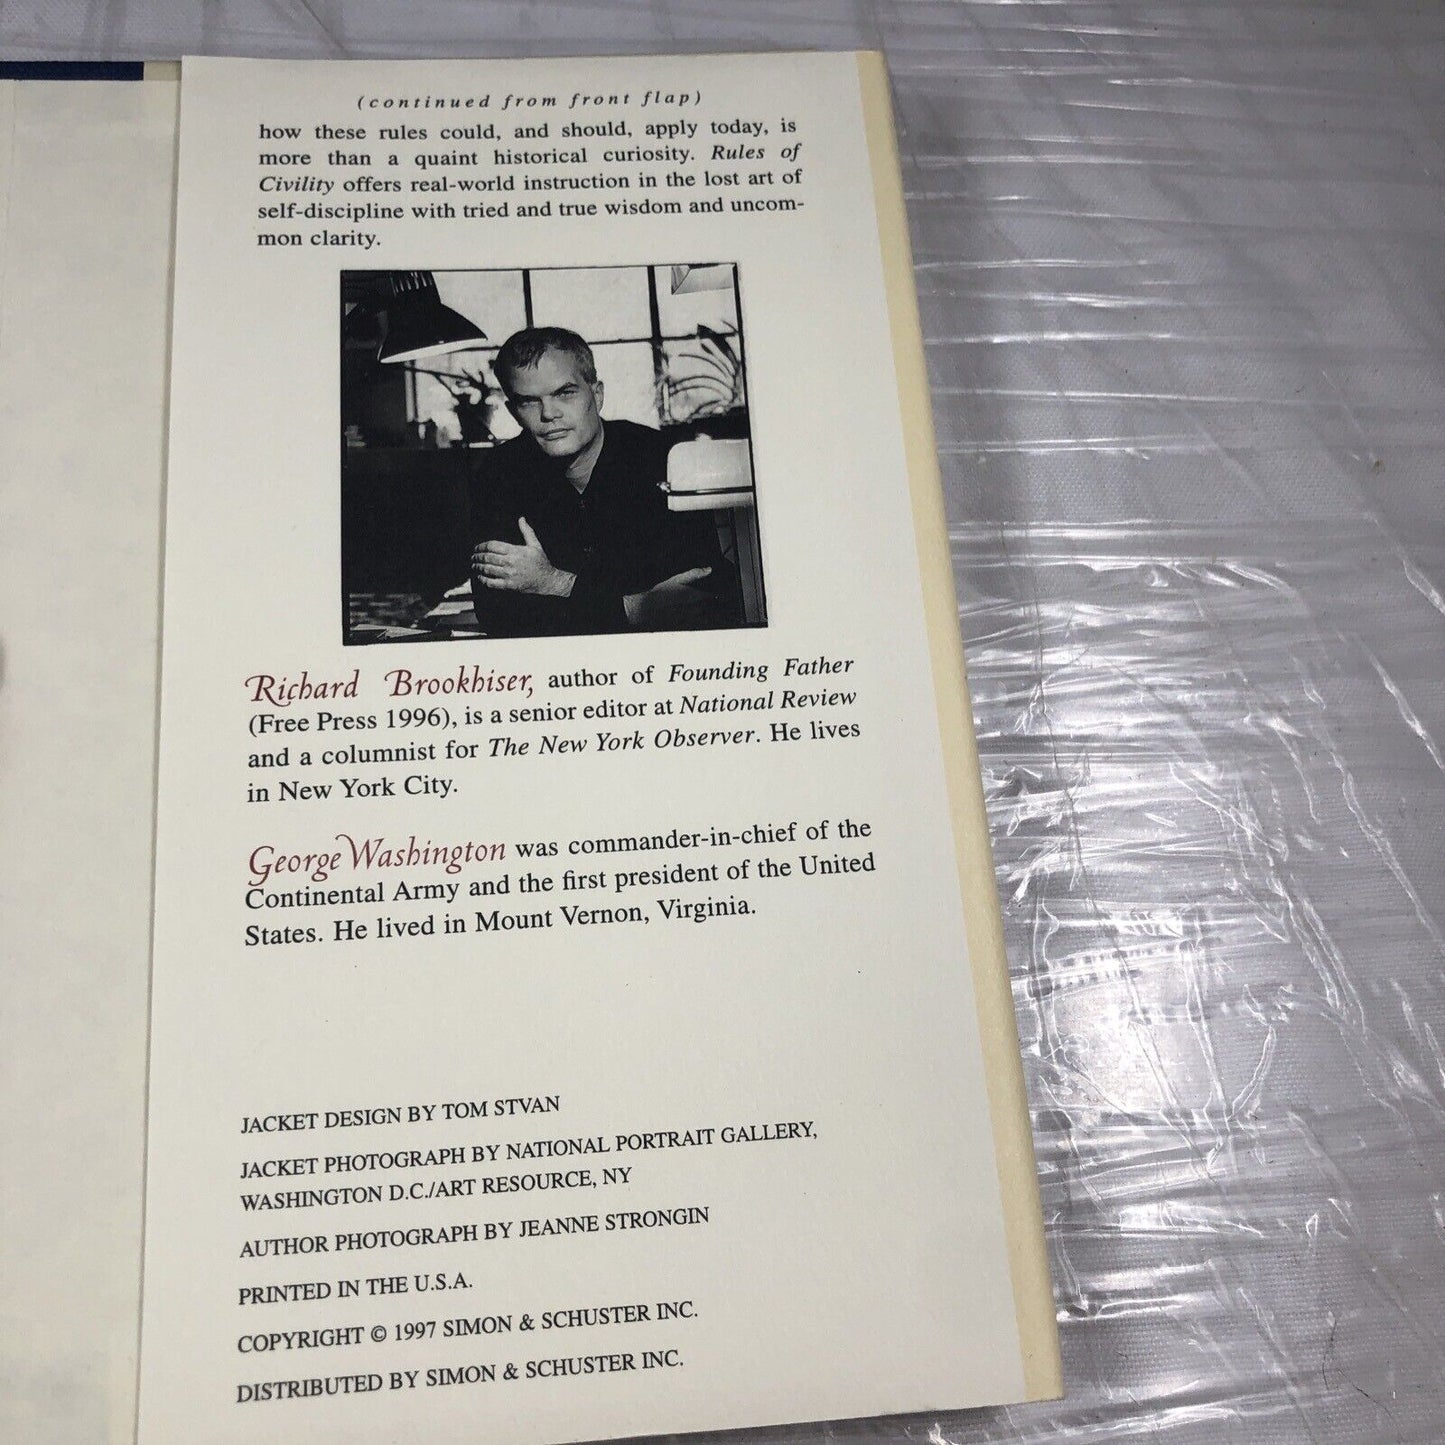 (continued from front flap)
how these rules could, and should, apply today, is
more than a quaint historical curiosity. Rules of
Civility offers real-world instruction in the lost art of
self-discipline with tried and true wisdom and uncom-
mon clarity.
Richard Brookhiser, author of Founding Father
(Free Press 1996), is a senior editor at National Review
and a columnist for The New York Observer. He lives
in New York City.
George Washington was commander-in-chief of the
Continental Army and the first president of the United
States. He lived in Mount Vernon, Virginia.
JACKET DESIGN BY TOM STVAN
JACKET PHOTOGRAPH BY NATIONAL PORTRAIT GALLERY,
WASHINGTON D.C./ART RESOURCE, NY
AUTHOR PHOTOGRAPH BY JEANNE STRONGIN
PRINTED IN THE U.S.A.
COPYRIGHT © 1997 SIMON & SCHUSTER INC.
DISTRIBUTED BY SIMON & SCHUSTER INC.